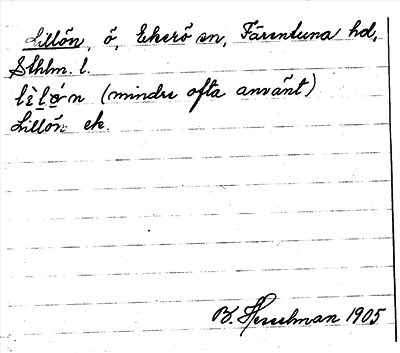 Lillön, ö, Ekerö sn, Färentuna hd,
Sthlm. l.
(mindre ofta använt)
Lillön ek.
B. Hesselman 1905